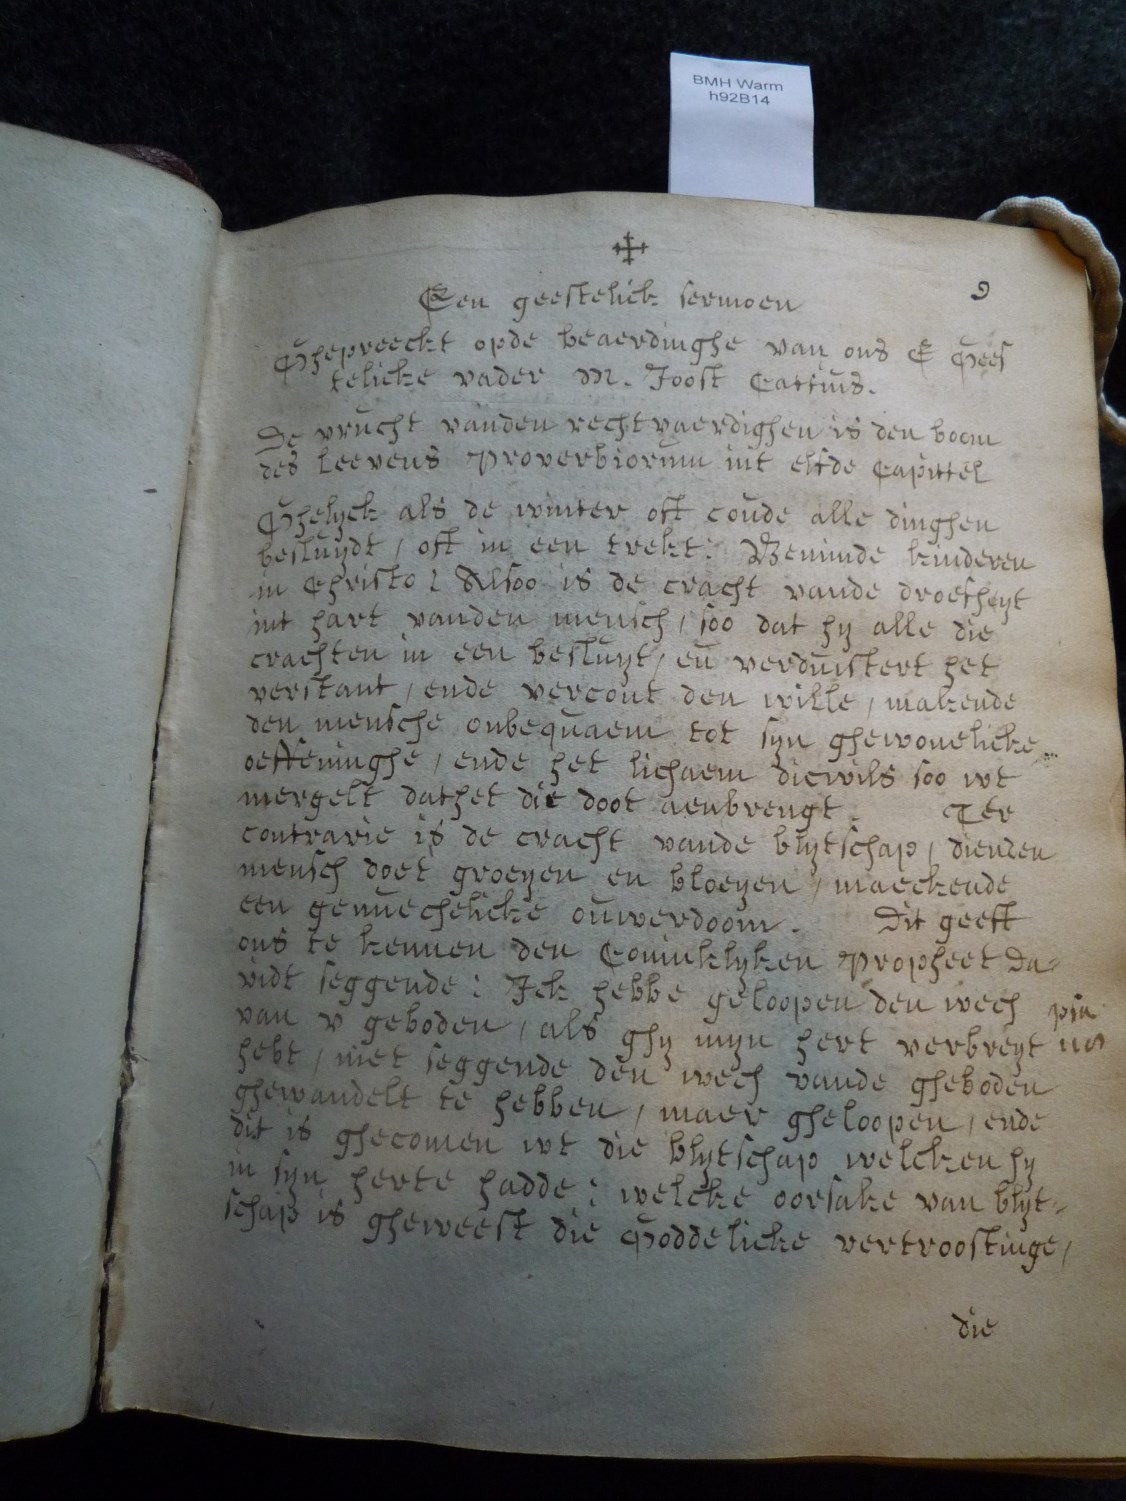 BMH Warm
h92B14
9
Een geestelick sermoen
Ghepreeckt opde beaerdinghe van ons E Gees
telicke vader M. Joost Cattius.
De vrucht vanden rechtvaerdighen is den boom
des Leevens Proverbiorum int elfde Capittel
Ghelyck als de winter oft coude alle dinghen
besluydt, oft in een trekt: Beminde kinderen
in Christo! Alsoo is de cracht vande droefheyt
int hart vanden mensch, soo dat hy alle die
crachten in een besluyt, en verduistert het
verstant, ende vercout den wille, makende
den mensche onbequaem tot syn ghewonelicke
oeffeninghe, ende het lichaem diewils soo wt
mergelt dathet die doot aenbrengt. Ter
contrarie is de cracht vande blytschap, dienden
mensch doet groeyen en bloeyen, maeckende
een genuechelicke ouwerdoom. Dit geeft
ons te kennen den Coninklyken Propheet Da-
vidt seggende: Ick hebbe geloopen den wech
van v geboden, als ghy myn hert verbreyt
hebt, niet seggende den wech vande gheboden
ghewandelt te hebben, maer gheloopen, ende
dit is ghecomen wt die blytschap welcken hy
in syn herte hadde: welcke oorsake van blyt-
schap is gheweest die Goddelicke vertroostinge,
die